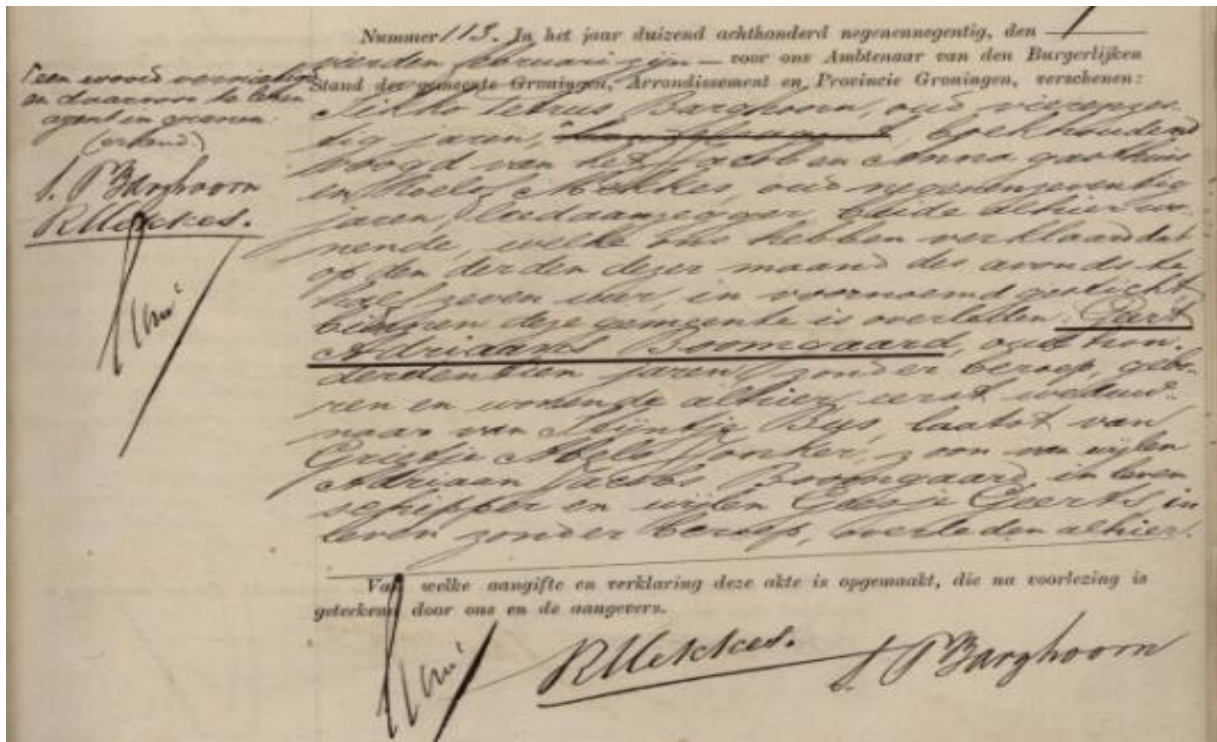 Nummer 113. In het jaar duizend achthonderd negenennegentig, den
vierden februari zijn — voor ons Ambtenaar van den Burgerlijken
Stand der gemeente Groningen, Arrondissement en Provincie Groningen, verschenen:
Petrus Barghoorn, oud vierenzes-
tig jaren, boekhoudend
voogd van het Jacob en Anna gasthuis
en Roelof Mekkes, oud negenenzeventig
jaren, leedaanzegger, beide alhier wo-
nende, welke ons hebben verklaard dat
op den derden dezer maand des avonds te
half zeven uur, in voornoemd gesticht
binnen deze gemeente is overleden Geert
Adriaans Boomgaard, oud hon-
derdentien jaren, zonder beroep, gebo-
ren en wonende alhier, eerst weduw-
naar van Stijntje Bus, laatst van
Grietje Abels Jonker, zoon van wijlen
Adriaan Jacobs Boomgaard, in leven
schipper en wijlen Geesje Geerts, in
leven zonder beroep, overleden alhier.
Van welke aangifte en verklaring deze akte is opgemaakt, die na voorlezing is
geteekend door ons en de aangevers.
RMekkes.
S. PBarghoorn
een woord vernietigd
en daarvoor te lezen
(erkend)
S. PBarghoorn
RMekkes.